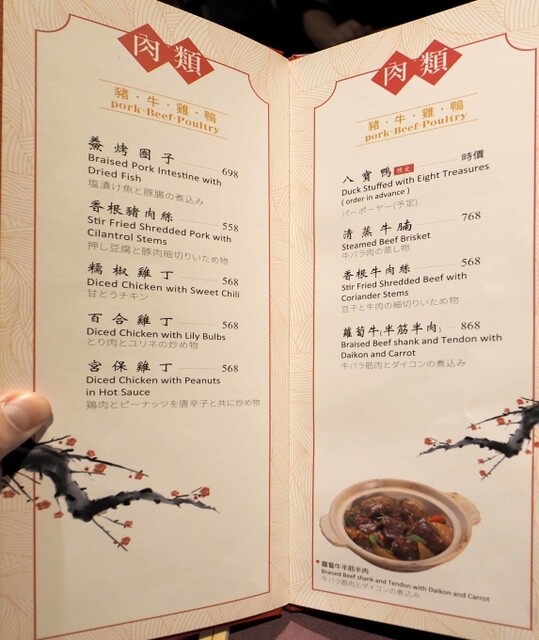 肉類
豬·牛·雞·鴨
pork·Beef·Poultry
鯗烤圈子 698
Braised Pork Intestine with
Dried Fish
塩漬け魚と豚腸の煮込み
香根豬肉絲 558
Stir Fried Shredded Pork with
Cilantrol Stems
押し豆腐と豚肉細切りいため物
糯椒雞丁 568
Diced Chicken with Sweet Chili
甘とうチキン
百合雞丁 568
Diced Chicken with Lily Bulbs
とり肉とユリネの炒め物
宮保雞丁 568
Diced Chicken with Peanuts
in Hot Sauce
鶏肉とピーナッツを唐辛子と共に炒め物
肉類
豬·牛·雞·鴨
pork·Beef·Poultry
八寶鴨 預定 時價
Duck Stuffed with Eight Treasures
( order in advance )
パーポーヤー(予定)
清蒸牛腩 768
Steamed Beef Brisket
牛バラ肉の蒸し物
香根牛肉絲 568
Stir Fried Shredded Beef with
Coriander Stems
豆干と牛肉の細切りいため物
蘿蔔牛(半筋半肉) 868
Braised Beef shank and Tendon with
Daikon and Carrot
牛バラ筋肉とダイコンの煮込み
蘿蔔牛半筋半肉
Braised Beef shank and Tendon with Daikon and Carrot
牛バラ筋肉とダイコンの煮込み